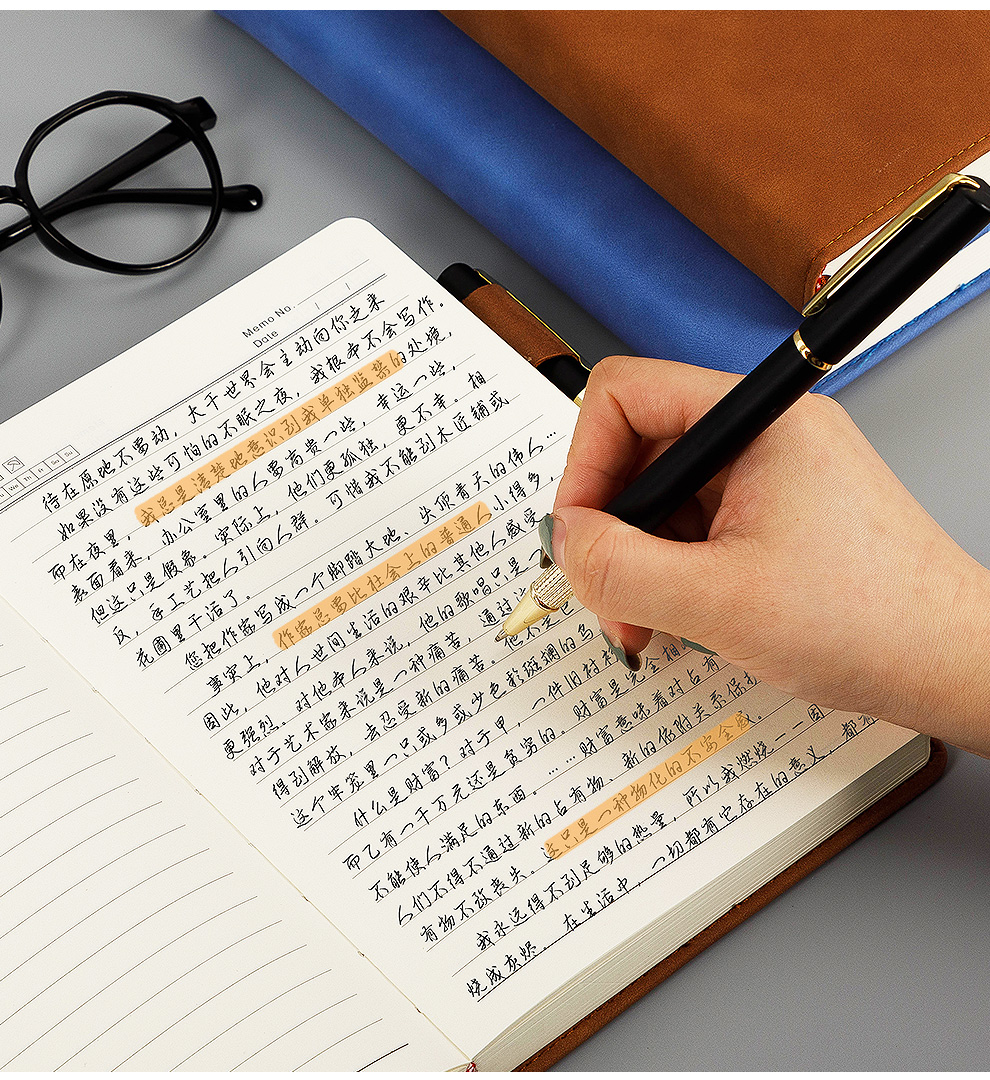 Memo No.
Date
待在原地不要动，大千世界会主动向你走来
如果没有这些可怕的不眠之夜，我根本不会写作.
而在夜里，我总是清楚地意识到我单独监禁的处境，
表面看来，办公室里的人要高贵一些，幸运一些，
但这只是假象。实际上，他们更孤独，更不幸。相
反，手工艺把人引向人群。可惜我不能到木匠铺或
花圃里干活了。
您把作家写成一个脚踏大地、头顶青天的伟人…
事实上，作家总要比社会上的普通人小得多，
因此，他对人世间生活的艰辛比其他人感受
更强烈。对他本人来说，他的歌唱只是一
对于艺术家来说是一种痛苦，通过
得到解放，去忍受新的痛苦。他不是
这个牢笼里一只或多或少色彩斑斓的鸟
什么是财富？对于甲，一件旧衬衫
而乙有一千万元还是贫穷的。财富是完全相
不能使人满足的东西。……财富意味着对占有
人们不得不通过新的占有物、新的依附关系保护
有物不致丧失。这只是一种物化的不安全感。
我永远得不到足够的热量，所以我燃烧——因
烧成灰烬。在生活中，一切都有它存在的意义，都有